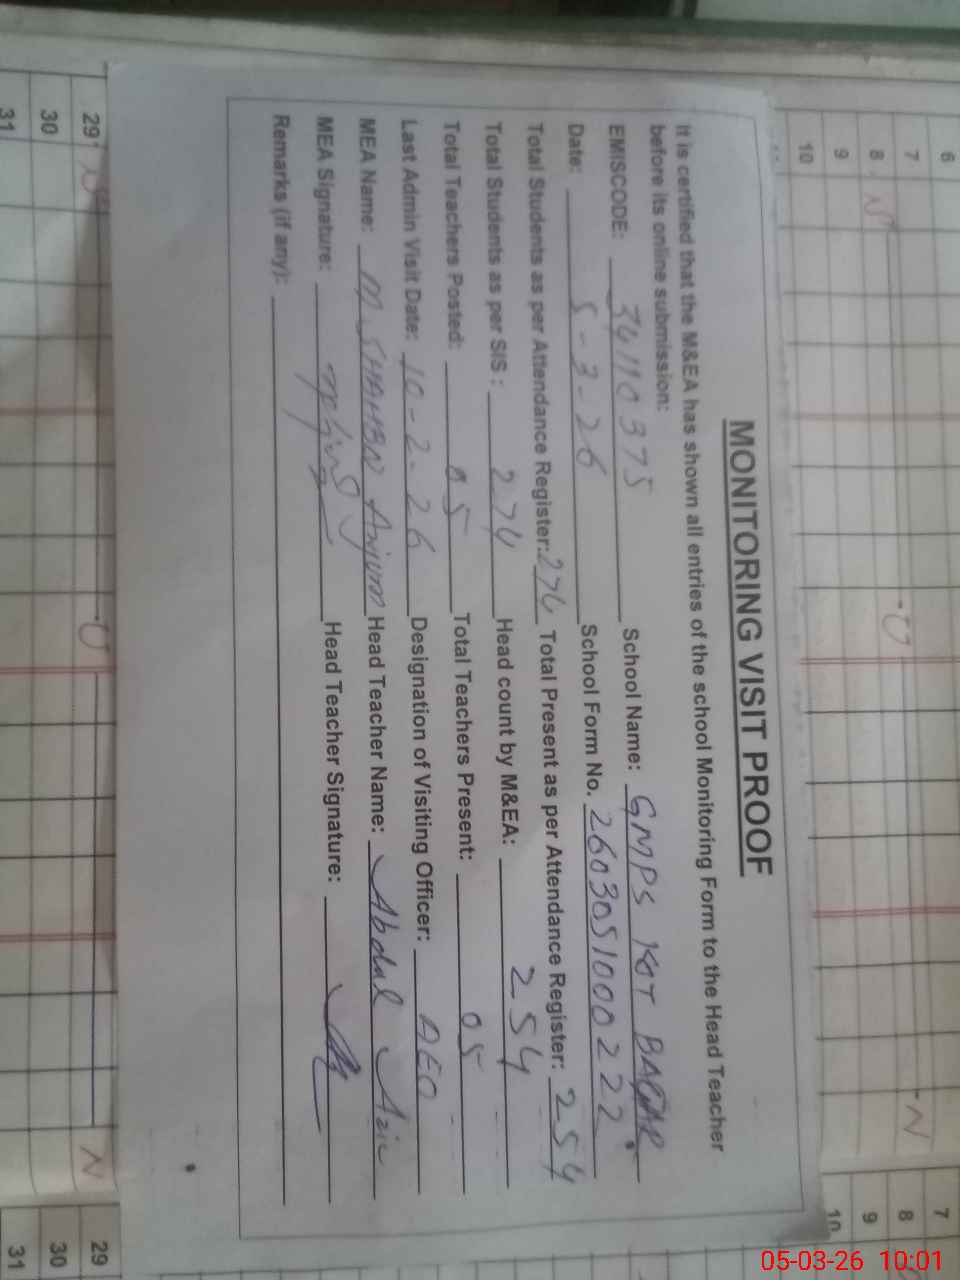 MONITORING VISIT PROOF
It is certified that the M&EA has shown all entries of the school Monitoring Form to the Head Teacher
before its online submission:
EMISCODE: 34110375 School Name: GMPS KOT
Date: 5-3-26 School Form No. 2603051000222
Total Students as per Attendance Register: 274 Total Present as per Attendance Register: 254
Total Students as per SIS: 274 Head count by M&EA: 254
Total Teachers Posted: 05 Total Teachers Present: 05
Last Admin Visit Date: 10-2-26 Designation of Visiting Officer: AEO
MEA Name: M. SHAHBAZ Anjum Head Teacher Name: Abdul
MEA Signature: Head Teacher Signature:
Remarks (if any):
6
7
8
9
10
29
30
31
7
8
9
10
29
30
31
05-03-26 10:01